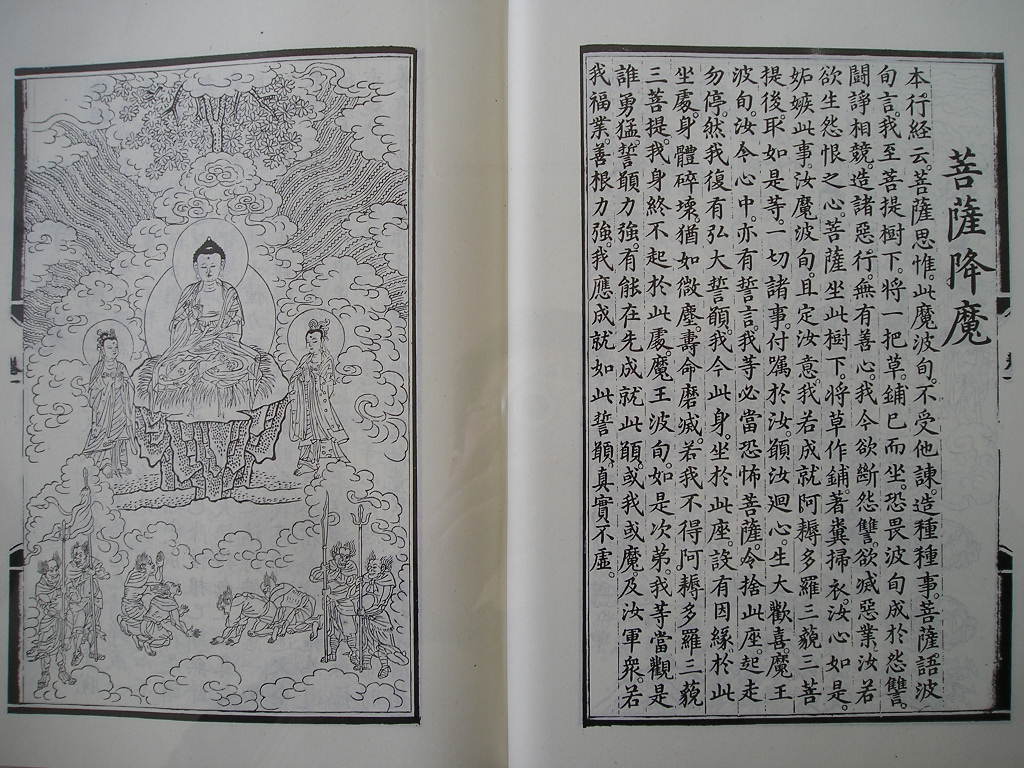 菩薩降魔
本行経云。菩薩思惟。此魔波旬。不受他諫。造種種事。菩薩語波
旬言。我至菩提樹下。將一把草。鋪已而坐。恐畏波旬成於怨讐。
鬪諍相競。造諸惡行。無有善心。我今欲斷怨讐。欲滅惡業。汝若
欲生怨恨之心。菩薩坐此樹下。將草作鋪。著糞掃衣。汝心如是。
妬嫉此事。汝魔波旬。且定汝意。我若成就阿耨多羅三藐三菩
提後。取如是等。一切諸事。付囑於汝。願汝廻心。生大歡喜。魔王
波旬。汝今心中。亦有誓言。我等必當恐怖菩薩。令捨此座。起走
勿停。然我復有弘大誓願。我今此身。坐於此座。設有因緣。於此
坐處。身體碎壞。猶如微塵。壽命磨滅。若我不得阿耨多羅三藐
三菩提。我身終不起於此處。魔王波旬。如是次第。我等當觀是
誰勇猛。誓願力強。有能在先成就此願。或我或魔。及汝軍衆。若
我福業。善根力強。我應成就如此誓願。真實不虛。